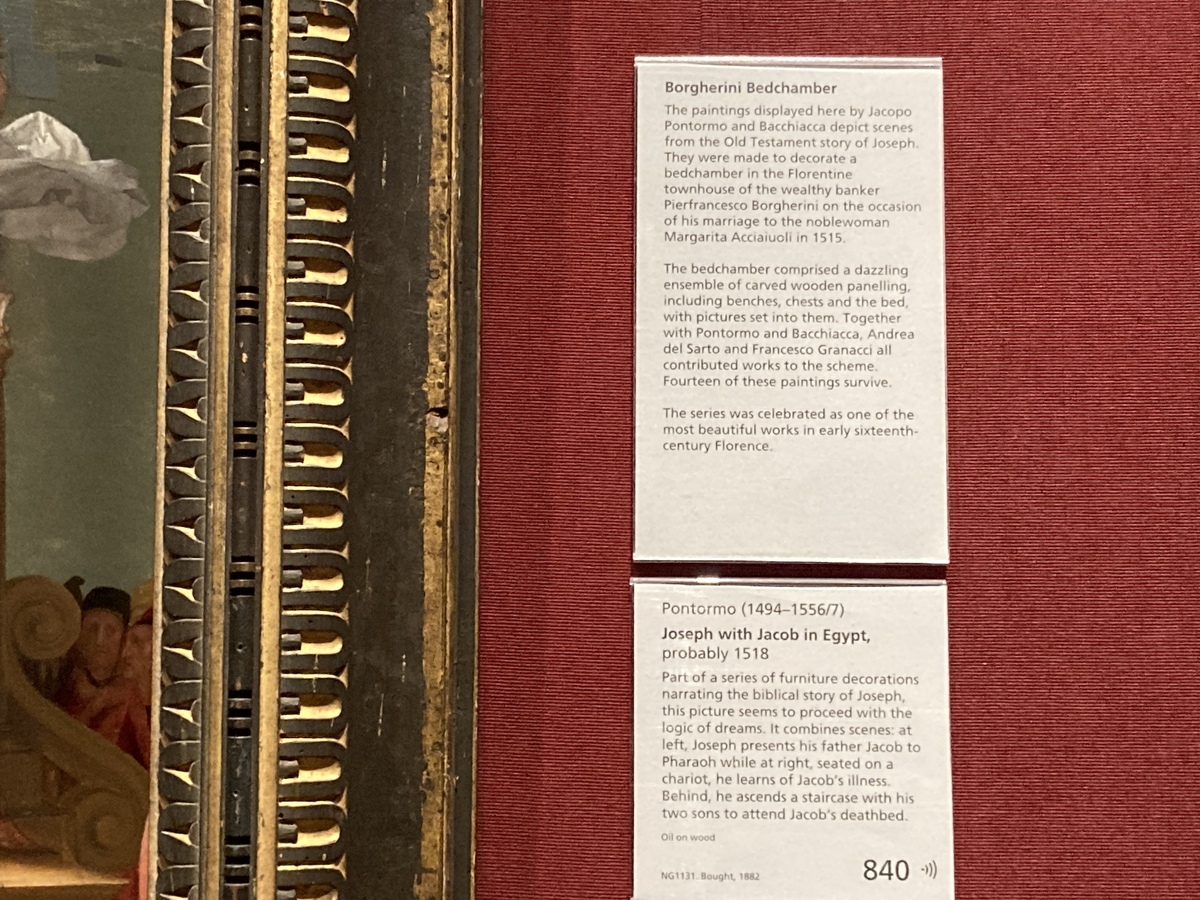 Borgherini Bedchamber
The paintings displayed here by Jacopo
Pontormo and Bacchiacca depict scenes
from the Old Testament story of Joseph.
They were made to decorate a
bedchamber in the Florentine
townhouse of the wealthy banker
Pierfrancesco Borgherini on the occasion
of his marriage to the noblewoman
Margarita Acciaiuoli in 1515.
The bedchamber comprised a dazzling
ensemble of carved wooden panelling,
including benches, chests and the bed,
with pictures set into them. Together
with Pontormo and Bacchiacca, Andrea
del Sarto and Francesco Granacci all
contributed works to the scheme.
Fourteen of these paintings survive.
The series was celebrated as one of the
most beautiful works in early sixteenth-
century Florence.
Pontormo (1494–1556/7)
Joseph with Jacob in Egypt,
probably 1518
Part of a series of furniture decorations
narrating the biblical story of Joseph,
this picture seems to proceed with the
logic of dreams. It combines scenes: at
left, Joseph presents his father Jacob to
Pharaoh while at right, seated on a
chariot, he learns of Jacob's illness.
Behind, he ascends a staircase with his
two sons to attend Jacob's deathbed.
Oil on wood
NG1131. Bought, 1882
840